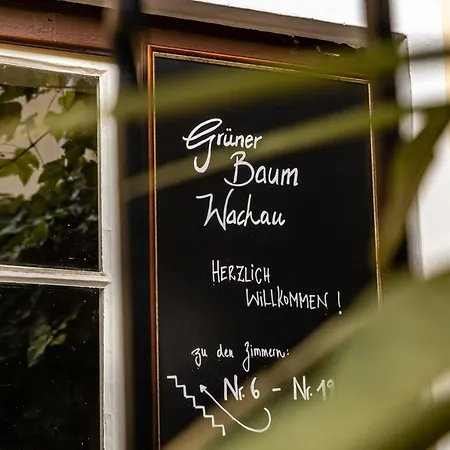 Grüner
Baum
Wachau
HERZLICH
WILLKOMMEN!
zu den Zimmern:
Nr. 6 - Nr. 19